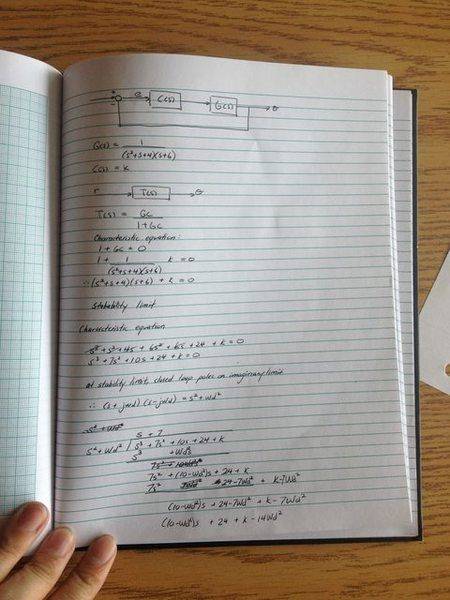 +
-
e
C(s)
G(s)
θ
G(s) = 1
(s²+s+4)(s+6)
C(s) = K
r
T(s)
θ
T(s) = GC
1+GC
Characteristic equation:
1 + GC = 0
1 + 1 K = 0
(s²+s+4)(s+6)
∴ (s²+s+4)(s+6) + K = 0
Stability limit
Characteristic equation
s³ + s² + 4s + 6s² + 6s + 24 + K = 0
s³ + 7s² + 10s + 24 + K = 0
at stability limit, closed loop poles on imaginary limit
∴ (s + jωd)(s - jωd) = s² + ωd²
s² + ωd²
s + 7
s² + ωd² s³ + 7s² + 10s + 24 + K
s³ + ωd²s
7s² + 10ωd²
7s² + (10-ωd²)s + 24 + K
7s² 24-7ωd² + K-7ωd²
(10-ωd²)s + 24-7ωd² + K - 7ωd²
(10-ωd²)s + 24 + K - 14ωd²